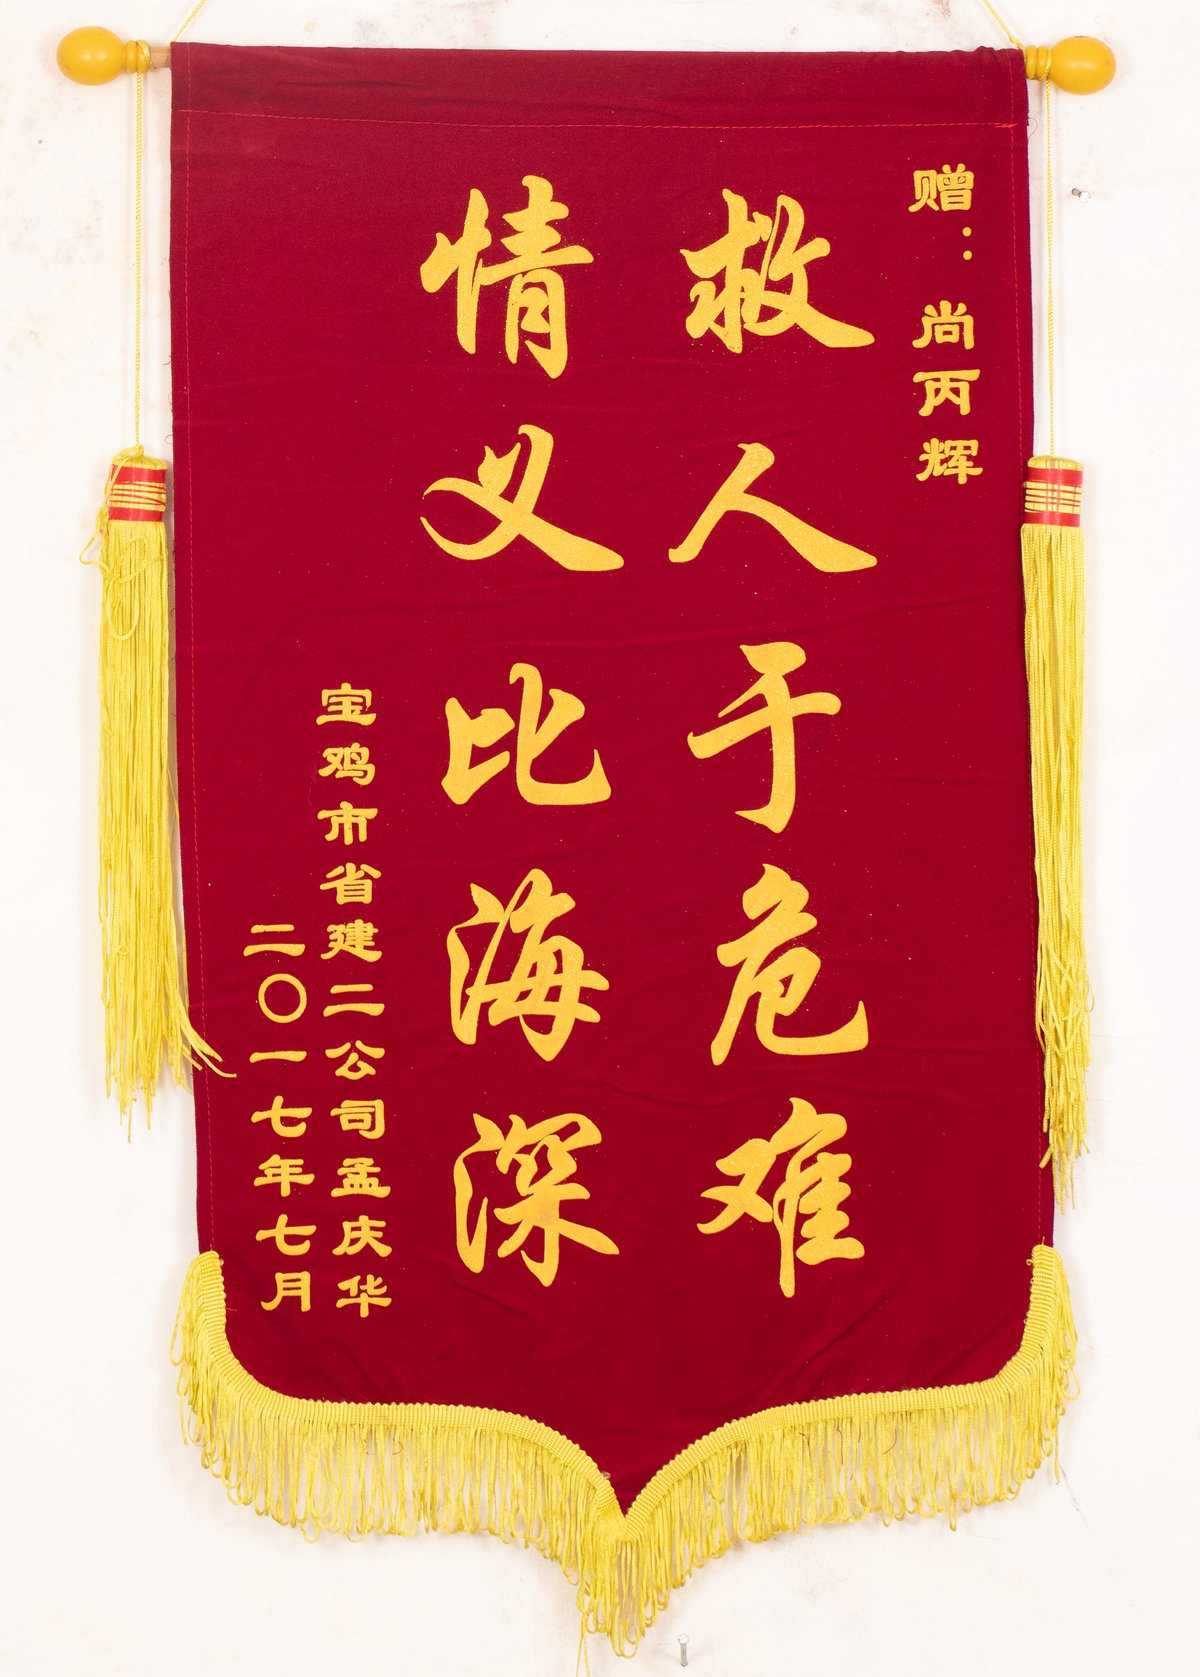 赠：尚丙辉
救人于危难
情义比海深
宝鸡市省建二公司孟庆华
二〇一七年七月